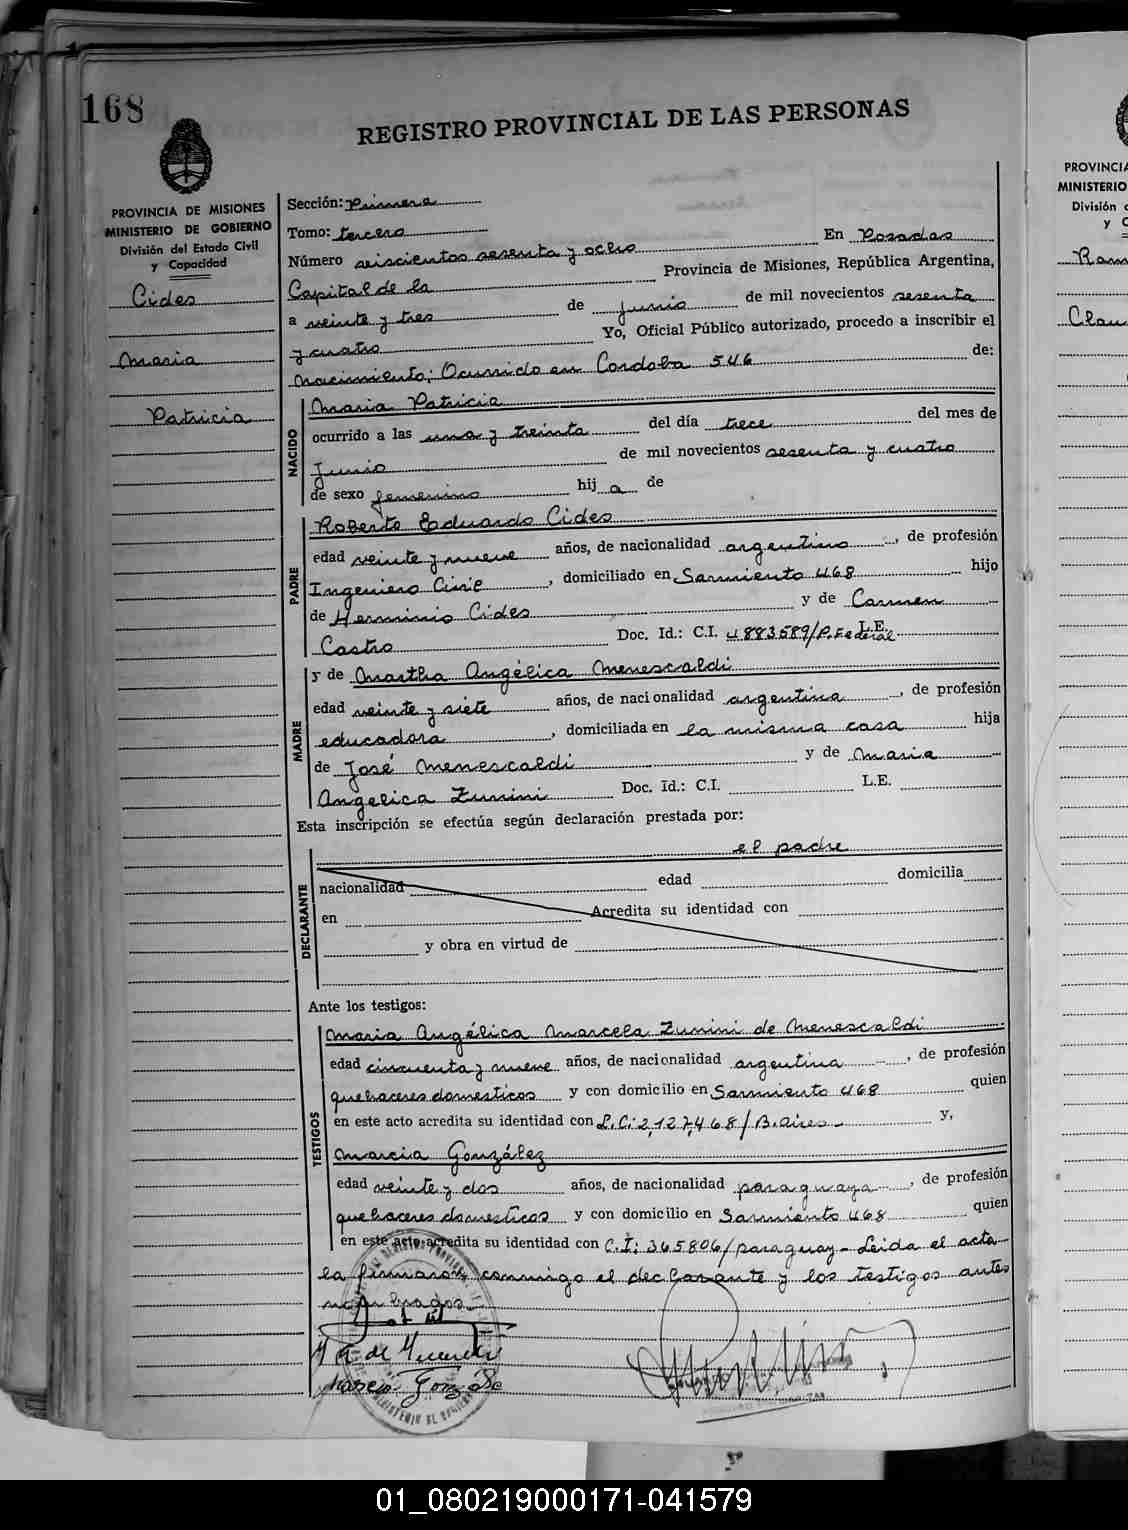 168
REGISTRO PROVINCIAL DE LAS PERSONAS
PROVINCIA DE MISIONES
MINISTERIO DE GOBIERNO
División del Estado Civil
y Capacidad
Cides
Maria
Patricia
Sección: Primera
Tomo: tercero
Número seiscientos sesenta y ocho En Posadas
Capital de la Provincia de Misiones, República Argentina,
a veinte y tres de Junio de mil novecientos sesenta
y cuatro Yo, Oficial Público autorizado, procedo a inscribir el
nacimiento; Ocurrido en Cordoba 546 de:
NACIDO
Maria Patricia
ocurrido a las una y treinta del día trece del mes de
Junio de mil novecientos sesenta y cuatro
de sexo femenino hij a de
PADRE
Roberto Eduardo Cides
edad veinte y nueve años, de nacionalidad argentino, de profesión
Ingeniero Civil, domiciliado en Sarmiento 468 hijo
de Herminio Cides y de Carmen
Castro Doc. Id.: C.I. 4883589/P. Federal L.E.
MADRE
y de Martha Angélica Menescaldi
edad veinte y siete años, de nacionalidad argentina, de profesión
educadora, domiciliada en la misma casa hija
de José Menescaldi y de Maria
Angelica Zunini Doc. Id.: C.I. L.E.
Esta inscripción se efectúa según declaración prestada por:
DECLARANTE
el padre
nacionalidad edad domicilia
en Acredita su identidad con
y obra en virtud de
Ante los testigos:
TESTIGOS
Maria Angélica Marcela Zunini de Menescaldi
edad cincuenta y nueve años, de nacionalidad argentina, de profesión
quehaceres domesticos y con domicilio en Sarmiento 468 quien
en este acto acredita su identidad con L.C: 2,127,468/B.aires- y,
Marcia González
edad veinte y dos años, de nacionalidad paraguaya, de profesión
quehaceres domesticos y con domicilio en Sarmiento 468 quien
en este acto acredita su identidad con C.I: 365806/paraguay- Leida el acta
la firmaron conmigo el declarante y los testigos antes
nombrados
PROVINCIA
MINISTERIO
División
y C
Ram
Clau
01_080219000171-041579